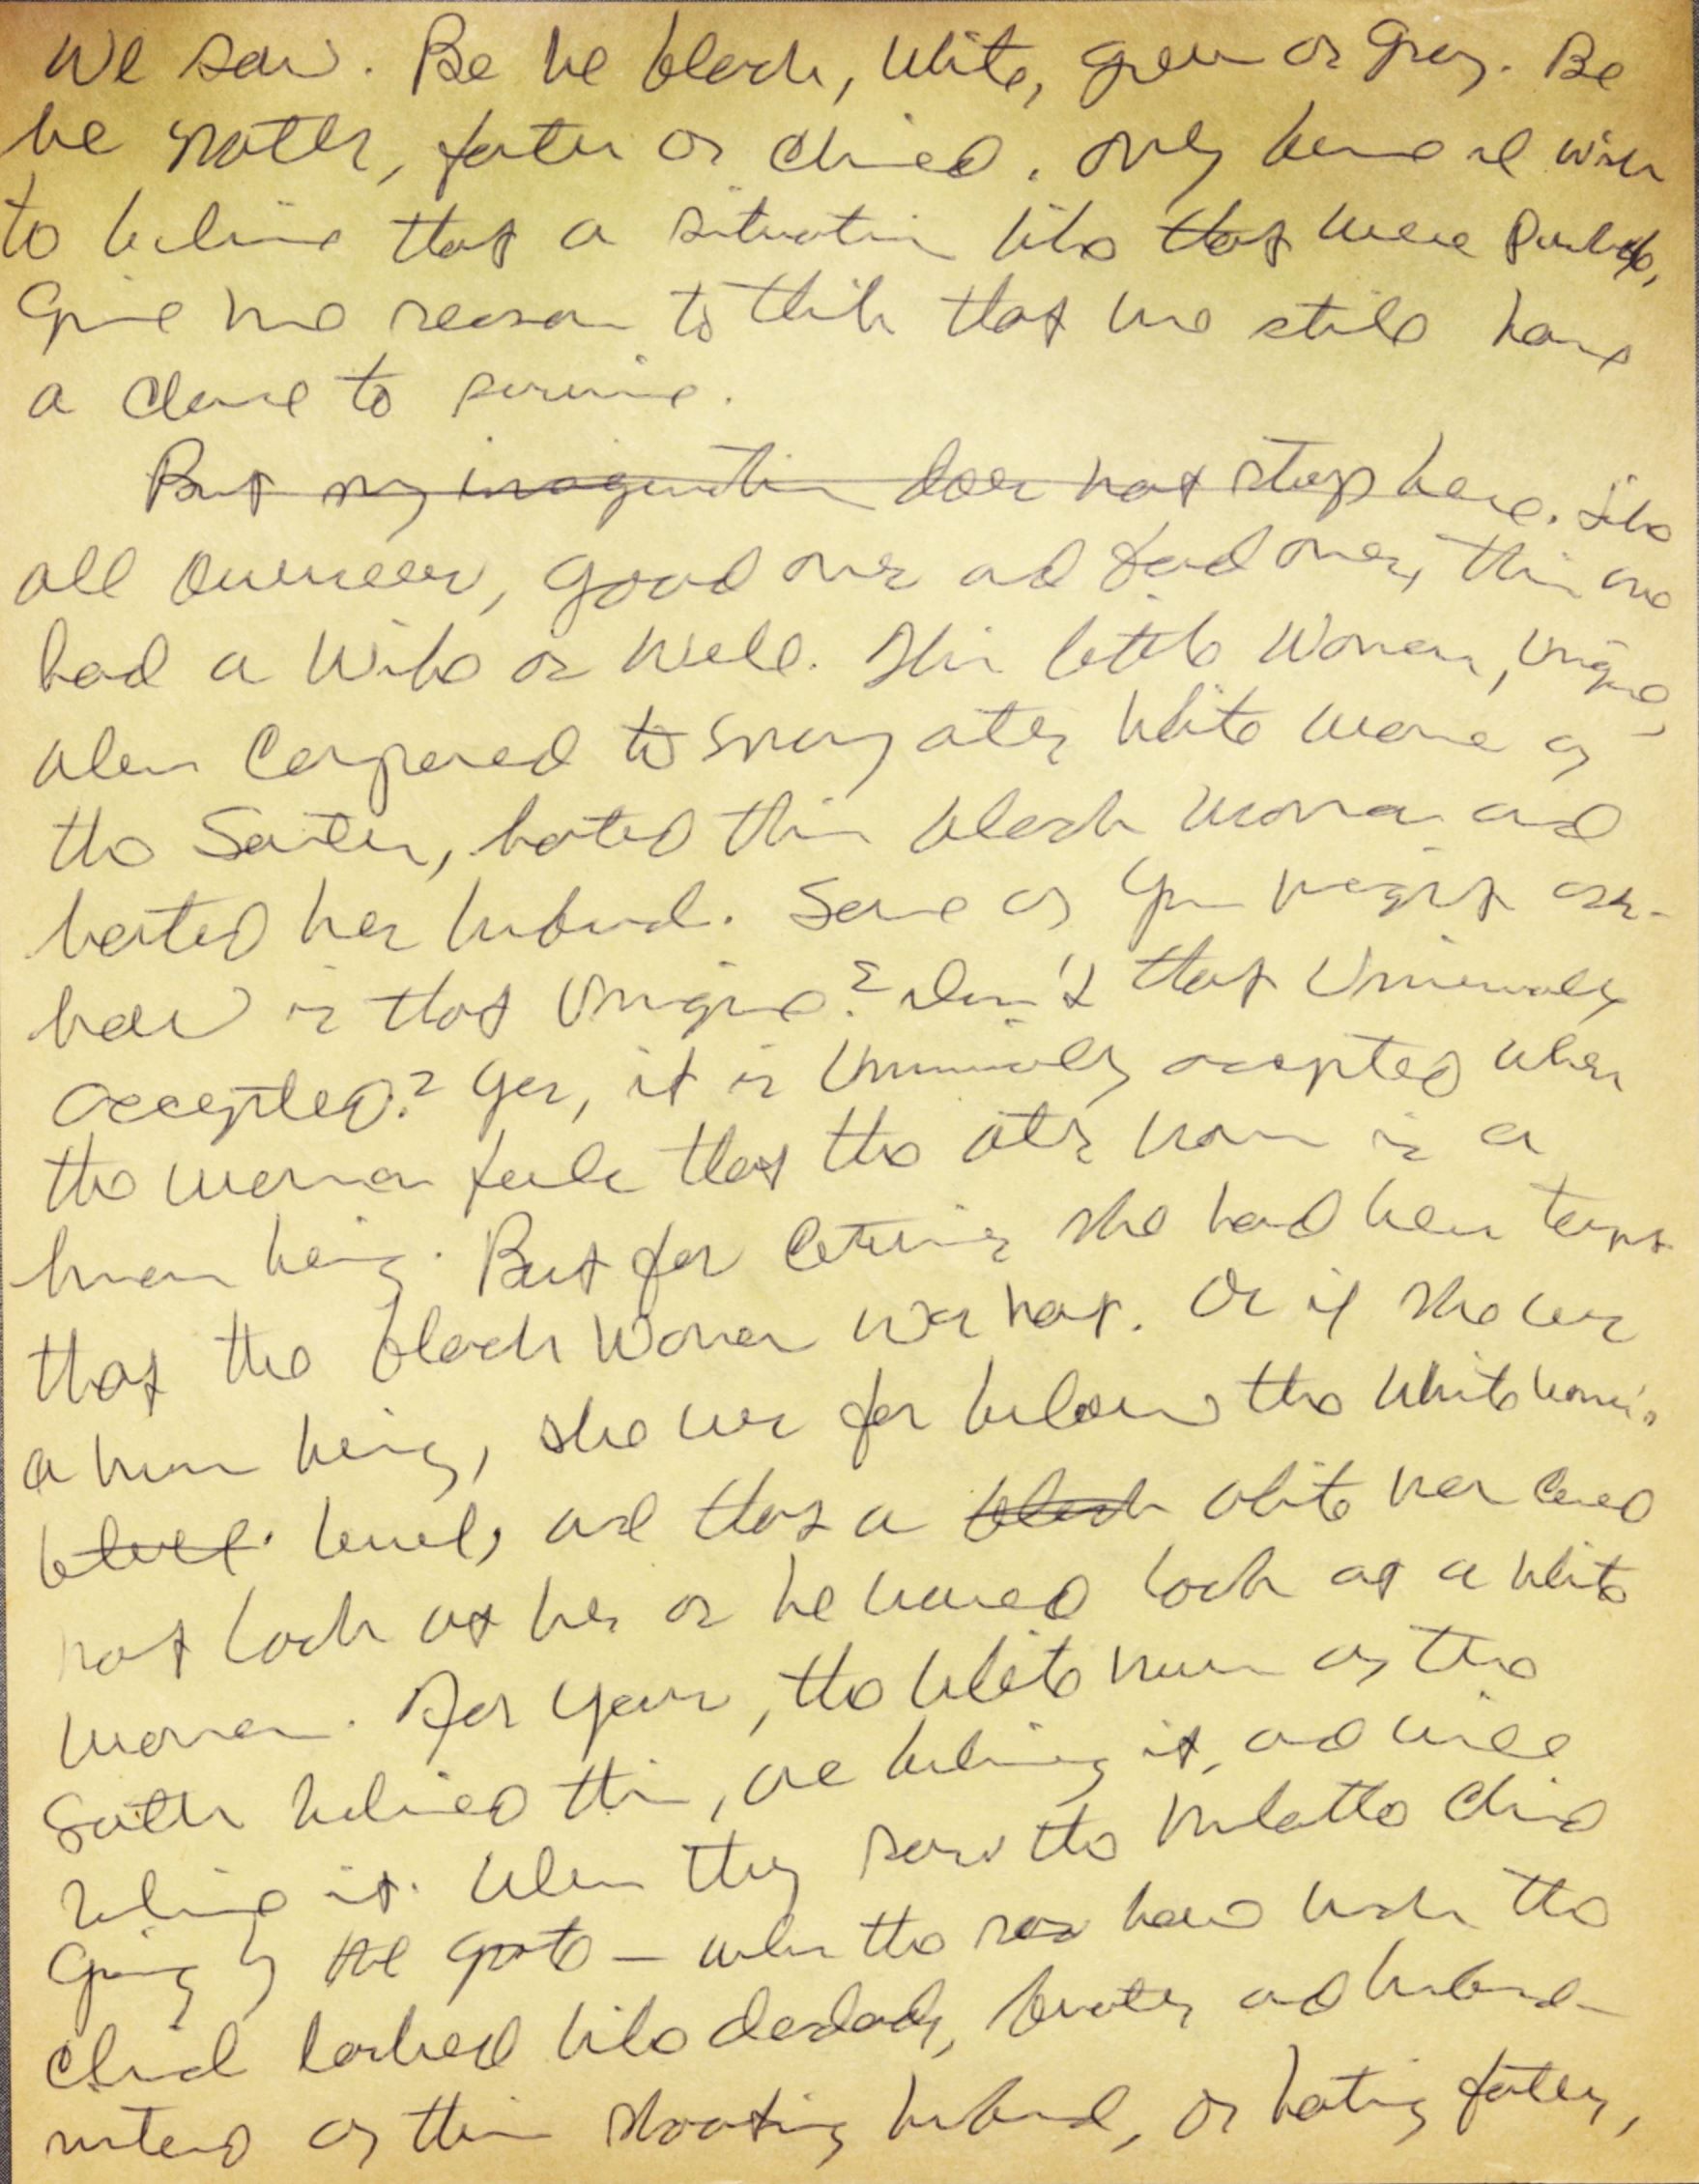 we saw. Be he black, white, green or gray. Be
he mother, father or child. Only and wish
to believe that a situation like that were possible,
Give me reason to think that we still have
a chance to survive.
But my imagination does not stop here. Like
all overseers, good ones and bad ones, this one
had a wife as well. This little woman, unique
when compared to many other white women of
the South, hated this black woman and
hated her husband. Some of you might ask-
how is that unique? Isn't that universally
accepted? Yes, it is universally accepted when
the woman feels that the other woman is a
human being. But for centuries she had been taught
that the black woman was not. Or if she was
a human being, she was far below the white woman's
level, and that a black white man could
not look at her as he would look at a white
woman. For years, the white women of the
South believed this, are believing it, and will
believe it. When they saw the mulatto child
going by the gate — when the said
child looked like dear daddy, brother and husband-
instead of this shooting husband, or hating father,